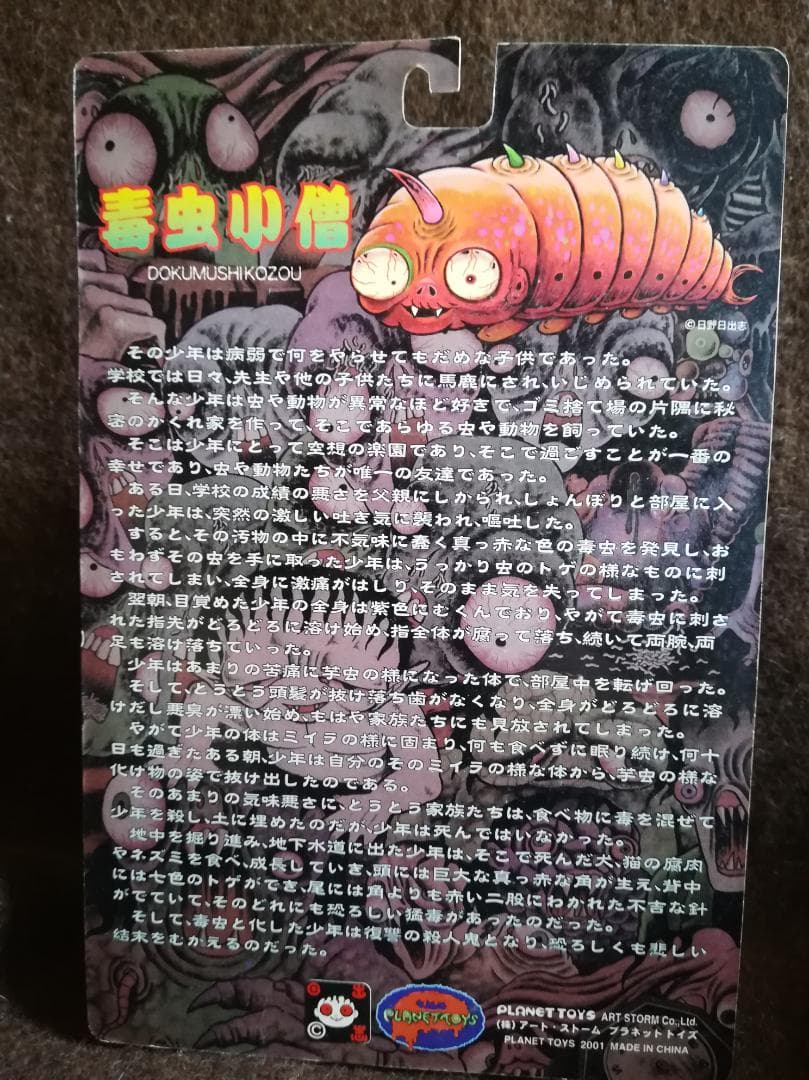 毒虫小僧
DOKUMUSHIKOZOU
©日野日出志
その少年は病弱で何をやらせてもだめな子供であった。
学校では日々、先生や他の子供たちに馬鹿にされ、いじめられていた。
そんな少年は虫や動物が異常なほど好きで、ゴミ捨て場の片隅に秘
密のかくれ家を作って、そこであらゆる虫や動物を飼っていた。
そこは少年にとって空想の楽園であり、そこで過ごすことが一番の
幸せであり、虫や動物たちが唯一の友達であった。
ある日、学校の成績の悪さを父親にしかられ、しょんぼりと部屋に入
った少年は、突然の激しい吐き気に襲われ、嘔吐した。
すると、その汚物の中に不気味に蠢く真っ赤な色の毒虫を発見し、お
もわずその虫を手に取った少年は、うっかり虫のトゲの様なものに刺
されてしまい、全身に激痛がはしり、そのまま気を失ってしまった。
翌朝、目覚めた少年の全身は紫色にむくんでおり、やがて毒虫に刺さ
れた指先がどろどろに溶け始め、指全体が腐って落ち、続いて両腕、両
足も溶け落ちていった。
少年はあまりの苦痛に芋虫の様になった体で、部屋中を転げ回った。
そして、とうとう頭髪が抜け落ち歯がなくなり、全身がどろどろに溶
けだし悪臭が漂い始め、もはや家族たちにも見放されてしまった。
やがて少年の体はミイラの様に固まり、何も食べずに眠り続け、何十
日も過ぎたある朝、少年は自分のそのミイラの様な体から、芋虫の様な
化け物の姿で抜け出したのである。
そのあまりの気味悪さに、とうとう家族たちは、食べ物に毒を混ぜて
少年を殺し、土に埋めたのだが、少年は死んではいなかった。
地中を掘り進み、地下水道に出た少年は、そこで死んだ犬、猫の腐肉
やネズミを食べ、成長していき、頭には巨大な真っ赤な角が生え、背中
には七色のトゲができ、尾には角よりも赤い二股にわかれた不吉な針
がでていて、そのどれにも恐ろしい猛毒があったのだった。
そして、毒虫と化した少年は復讐の殺人鬼となり、恐ろしくも悲しい
結末をむかえるのだった。
日 出
© 志
PLANET TOYS
PLANET TOYS ART STORM Co., Ltd.
(株)アート・ストーム プラネットトイズ
PLANET TOYS 2001 MADE IN CHINA